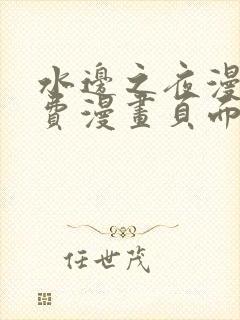 水邊之夜漫
費漫畫頁面
任世茂